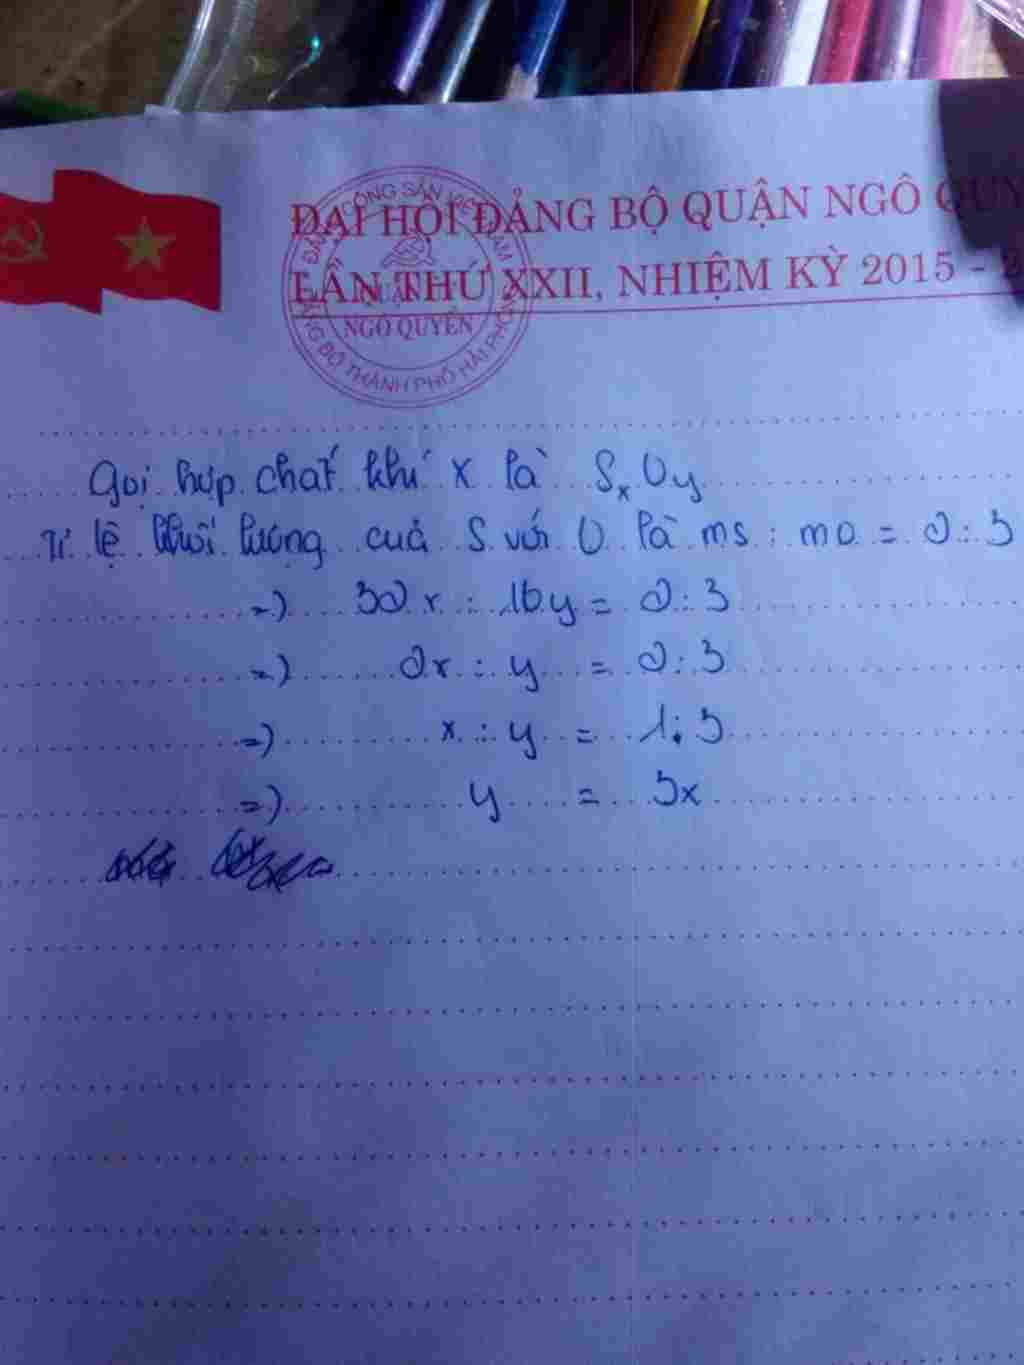 ĐẠI HỘI ĐẢNG BỘ QUẬN NGÔ QUY
LẦN THỨ XXII, NHIỆM KỲ 2015 - 2
NGÔ QUYỀN
ĐẢNG BỘ THÀNH PHỐ HẢI PHÒNG
Gọi hợp chất khí X là SxOy
Tỉ lệ khối lượng của S với O là mS : mO = 2 : 3
=) 32x : 16y = 2 : 3
=) 2x : y = 2 : 3
=) x : y = 1 : 3
=) y = 3x